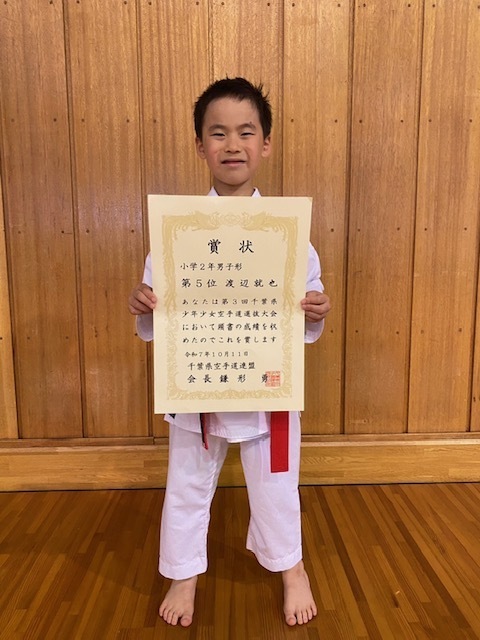 賞状
小学２年男子形
第５位 渡辺就也
あなたは第３回千葉県
少年少女空手道選抜大会
において頭書の成績を収
めたのでこれを賞します
令和７年１０月１１日
千葉県空手道連盟
会長 鎌形 勇